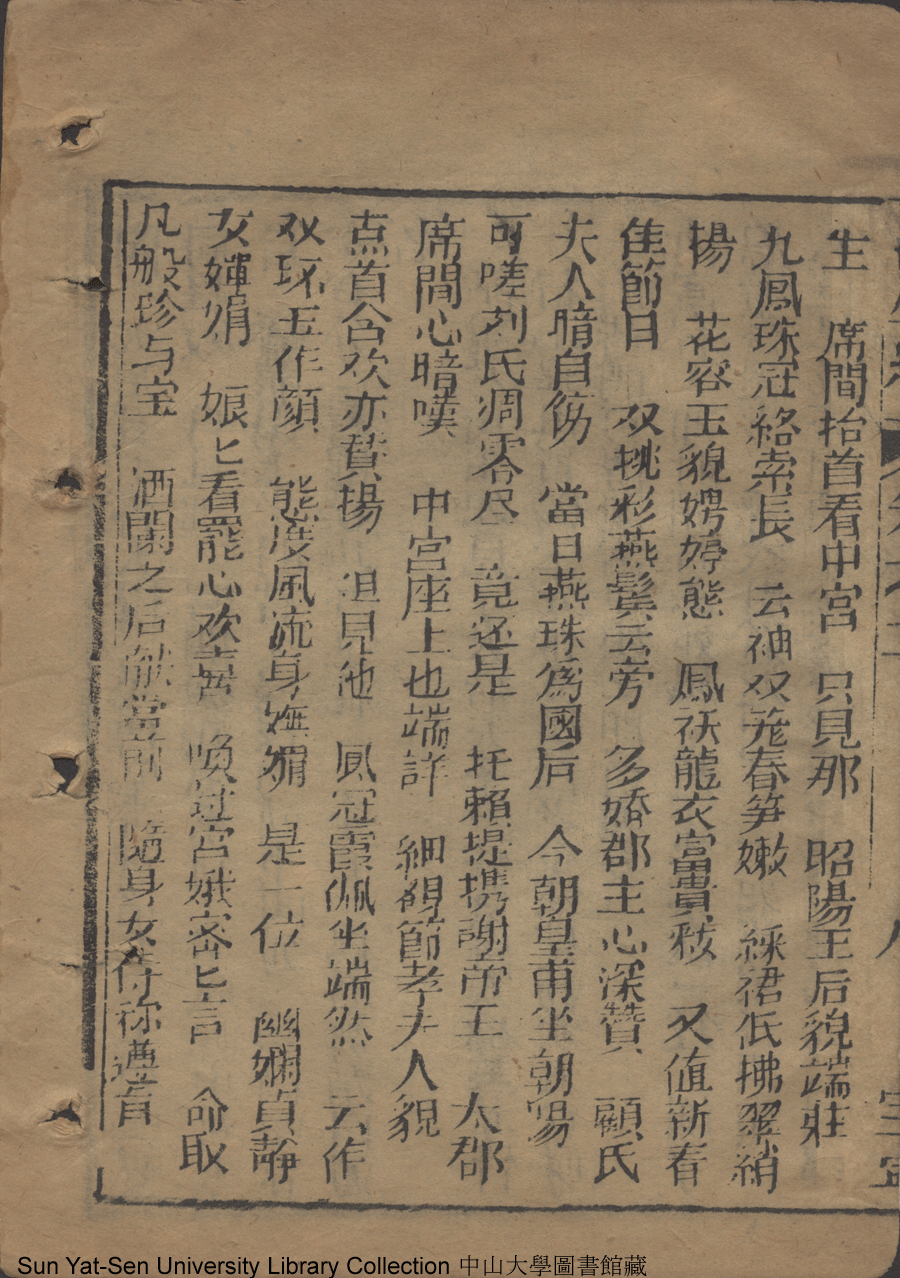 生　席間抬首看中宮　只見那　昭陽王后貌端莊
九鳳珠冠絡索長　云袖双筅春笋嫩　綵裙低拂翠綃
揚　花容玉貌娉婷態　鳳袄龍衣富貴秡　又值新春
佳節日　双挑彩燕鬓云旁　多嬌郡主心深贊　顧氏
夫人暗自傷　當日燕珠爲國后　今朝皇甫坐朝陽
可嗟刘氏凋零尽　竟还是　托賴提携謝帝王　大郡
席間心暗嘆　中宮座上也端詳　細視節孝夫人貌
点首含欢亦賛揚　但見他　鳳冠霞佩坐端然　云作
双环玉作顔　態度風流身嫵媚　是一位　幽嫻貞靜
女嬋娟　娘匕看罷心欢喜　喚过宮娥密匕言　命取
凡般珍与宝　酒闌之后献當前　随身女侍称遵旨